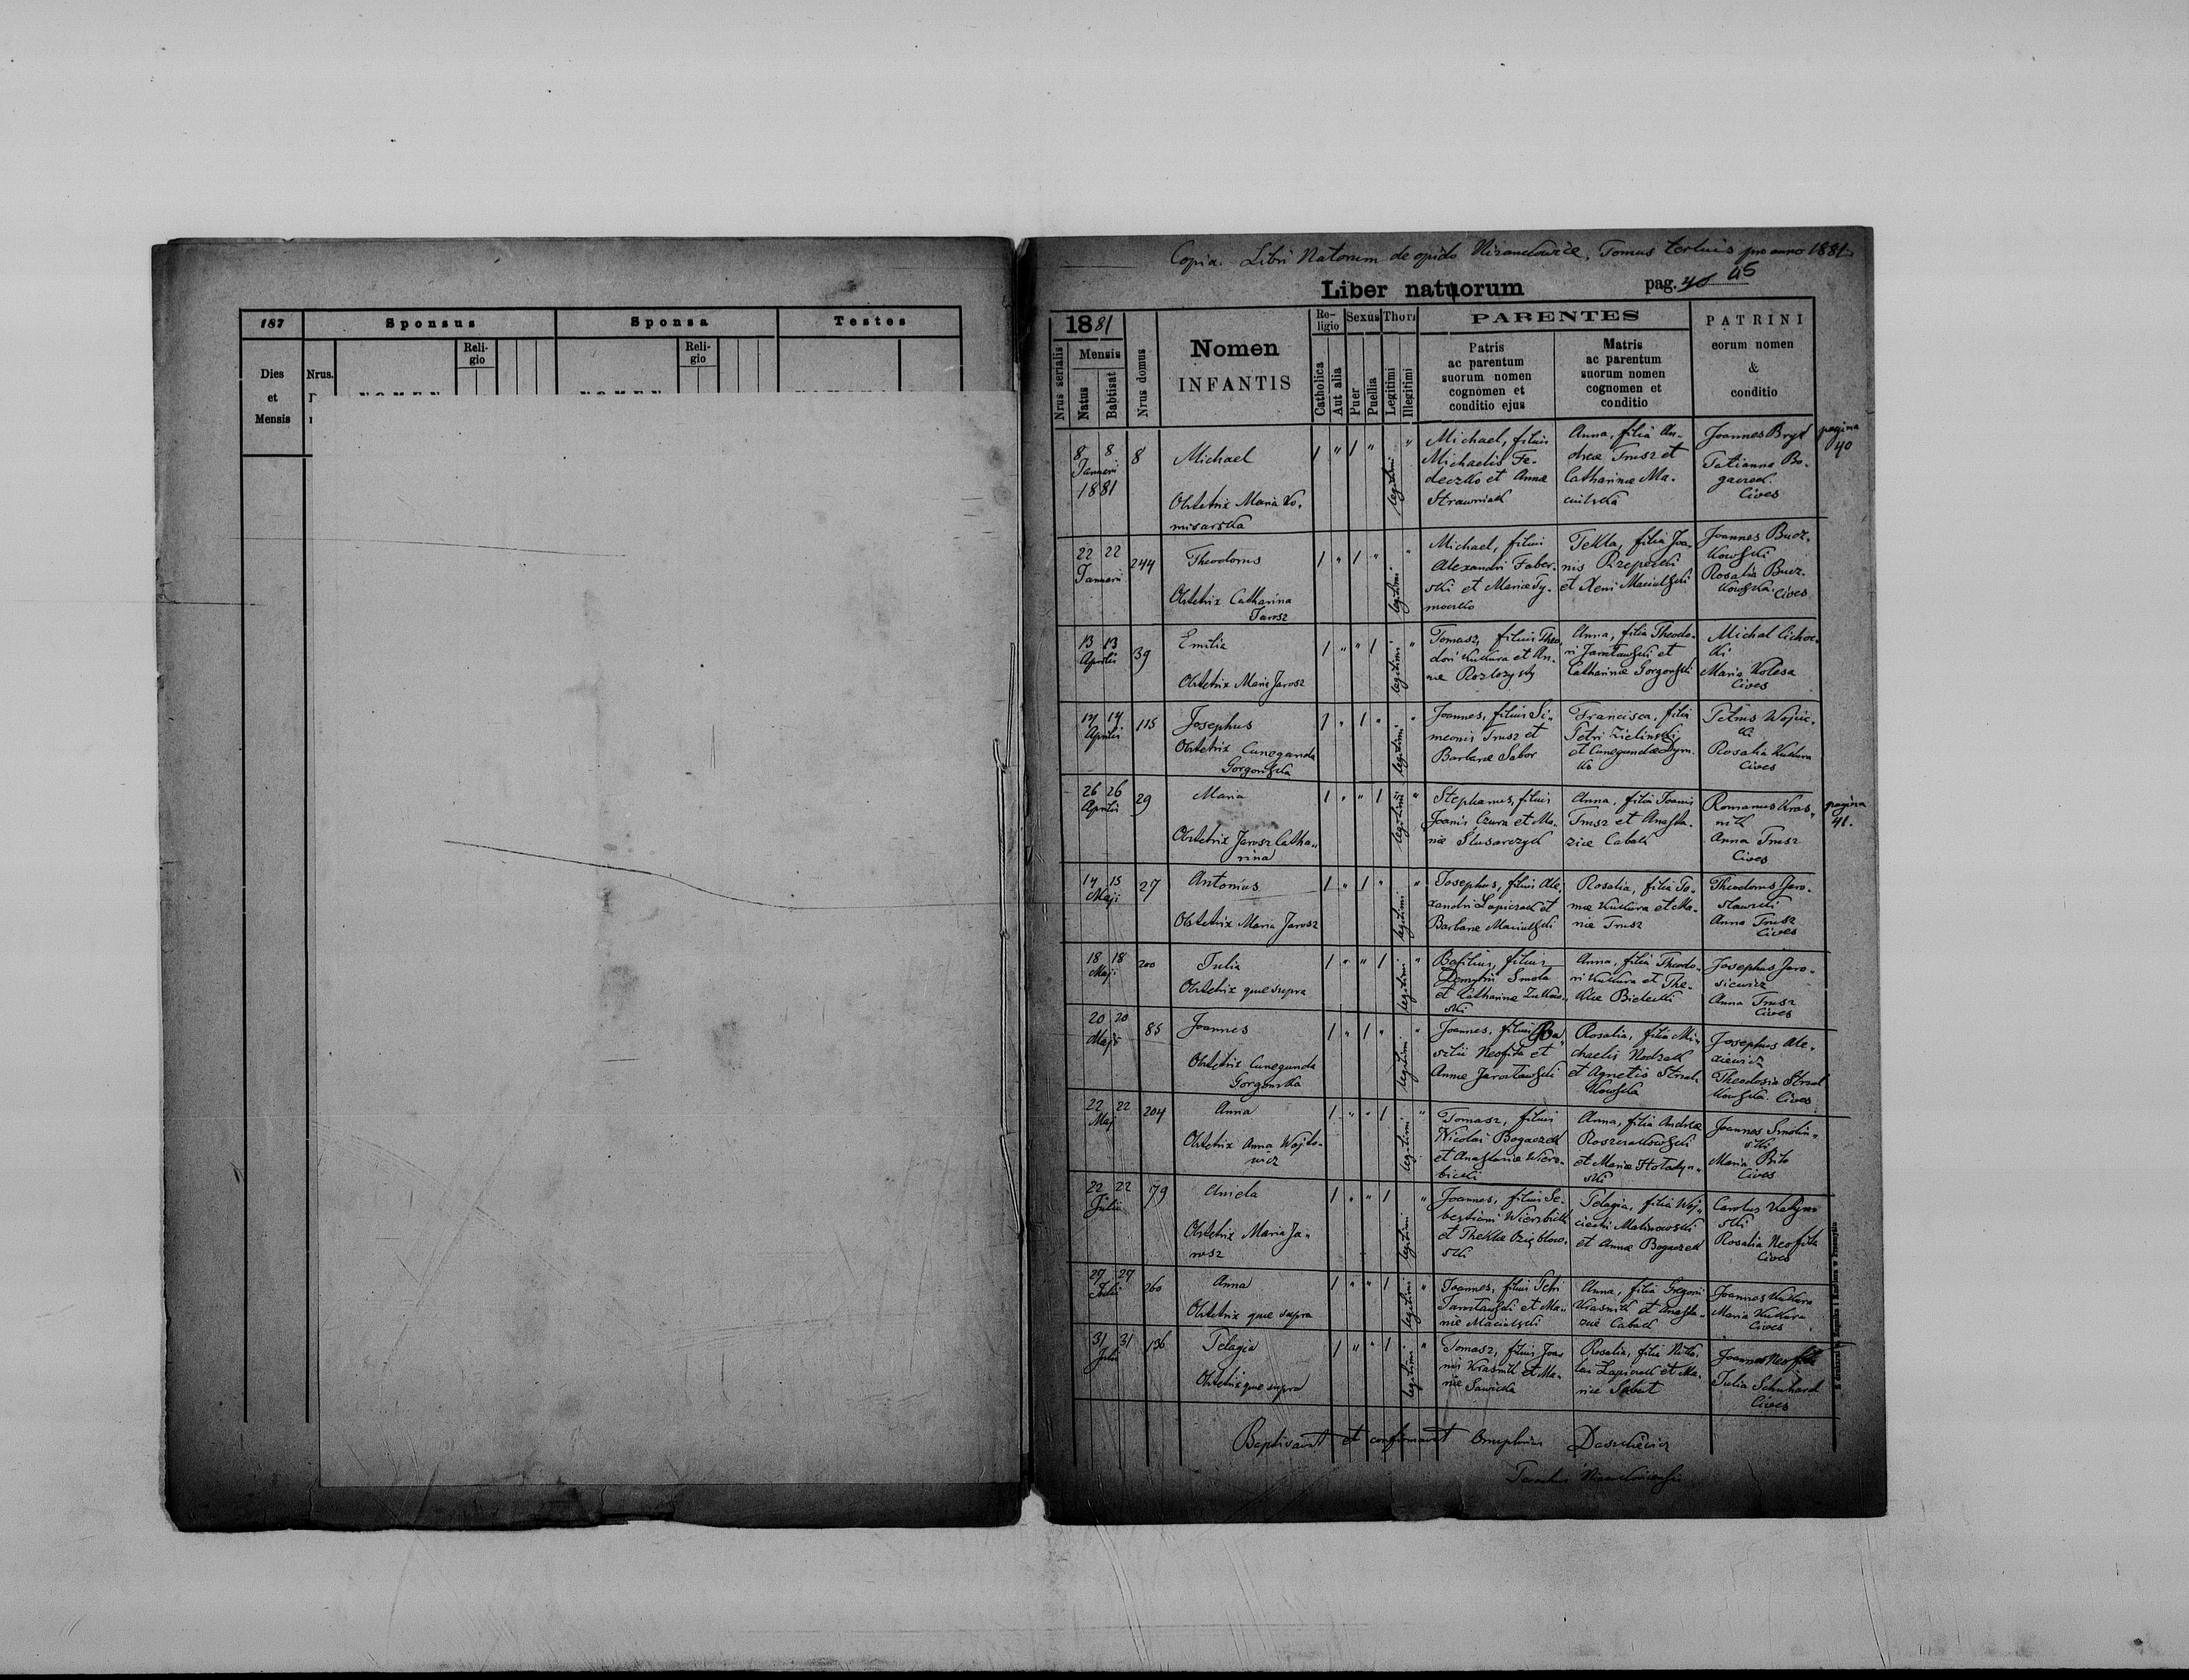 187
Sponsus
Sponsa
Testes
Dies
et
Mensis
Nrus.
Reli-
gio
Reli-
gio
Copia. Libri Natorum de opido Nizankowice, Tomus tertius pro anno 1881
Liber natuorum
pag. 45
1881
Nrus serialis
Mensis
Natus
Babtisat
Nrus domus
Nomen
INFANTIS
Re-
ligio
Catholica
Aut alia
Sexus
Puer
Puella
Thori
Legitimi
Illegitimi
PARENTES
Patris
ac parentum
suorum nomen
cognomen et
conditio ejus
Matris
ac parentum
suorum nomen
cognomen et
conditio
PATRINI
eorum nomen
&
conditio
8 8
Januari
1881
8
Michael
Obstetrix Maria Ko-
misarska
1 " 1 "
legitimi
"
Michael, filius
Michaelis Fe-
deczko et Annae
Strawniak
Anna, filia An-
dreae Trusz et
Catharinae Ma-
Joannes Bryś
Tatianna Bo-
gaczek
Cives
pagina
40
22 22
Januari
244
Theodorus
Obstetrix Catharina
Jarosz
1 " 1 "
legitimi
"
Michael, filius
Alexandri Faber-
ski et Mariae Ty-
moczko
Tekla, filia Joa-
nis Przepolski
et Xeni Macialski
Joannes Bucz-
kowski
Rosalia Bucz-
kowska. Cives
13 13
Aprilis
39
Emilia
Obstetrix Maria Jarosz
1 " " 1
legitimi
"
Tomasz, filius Theo-
dori Kukura et An-
nae
Anna, filia Theodo-
ri Jarosławski et
Catharinae Gorgonski
Michal Cichoc-
ki
Maria Kolesa
Cives
14 14
Aprilis
115
Josephus
Obstetrix Cunegunda
Gorgonska
1 " 1 "
legitimi
"
Joannes, filius Si-
meonis Trusz et
Barbarae Sabor
Francisca, filia
Petri Zielinski
et Cunegundae Dym-
ko
Petrus Wojcic-
ki
Rosalia Kukura
Cives
26 26
Aprilis
29
Maria
Obstetrix Jarosz Catha-
rina
1 " " 1
legitimi
"
Stephanus, filius
Joanis Czura et Ma-
riae Slusarczyk
Anna, filia Joanis
Trusz et Anasta-
ziae Cabak
Romanus Kras-
nik
Anna Trusz
Cives
pagina
41.
14 15
Maji
27
Antonius
Obstetrix Maria Jarosz
1 " 1 "
legitimi
"
Josephus, filius Ale-
xandri Lapiczak et
Barbarae Macialski
Rosalia, filia To-
mae Kukura et Ma-
riae Trusz
Theodorus Jaro-
slawski
Anna Trusz
Cives
18 18
Maji
200
Julia
Obstetrix quae supra
1 " " 1
legitimi
"
Basilius, filius
Demytri Smola
et Catharinae Zulkow-
ski
Anna, filia Theodo-
ri Kukura et The-
klae Bielecki
Josephus Jaro-
siewicz
Anna Trusz
Cives
20 20
Maji
85
Joannes
Obstetrix Cunegunda
Gorgonska
1 " 1 "
legitimi
"
Joannes, filius Ba-
silii Neofita et
Annae Jarosławski
Rosalia, filia Mi-
chaelis Nodzak
et Agnetis Strzel-
kowska
Josephus Ale-
xiewicz
Theodosia Strzel
kowska. Cives
22 22
Maj
204
Anna
Obstetrix Anna Wojto-
wicz
1 " " 1
legitimi
"
Tomasz, filius
Nicolai Bogaczek
et Anastaziae Wierz-
bicki
Anna, filia Andreae
Roszczakowski
et Mariae Hołodyn-
ski
Joannes Smolin-
ski
Maria Bilo
Cives
22 22
Julii
79
Aniela
Obstetrix Maria Ja-
rosz
1 " " 1
legitimi
"
Joannes, filius Se-
bastiani Wierzbicki
et Theklae Dzięblow-
ski
Pelagia, filia Woj-
ciechi Malinowski
et Annae Bogaczek
Carolus
ski
Rosalia Neofita
Cives
27 27
Julii
260
Anna
Obstetrix quae supra
1 " " 1
legitimi
"
Joannes, filius Petri
Jarosławski et Ma-
riae Macialski
Anna, filia Gregorii
Krasnik et Anasta-
ziae Cabak
Joannes Kukura
Maria Kukura
Cives
31 31
Julii
136
Pelagia
Obstetrix quae supra
1 " " 1
legitimi
"
Tomasz, filius Joa-
nis Krasnik et Ma-
riae Sawicka
Rosalia, filia Niko-
lai Lapiczak et Ma-
riae Sabat
Joannes Neofita
Julia Schuhard
Cives
Baptisavit et confirmavit Daszkiewicz